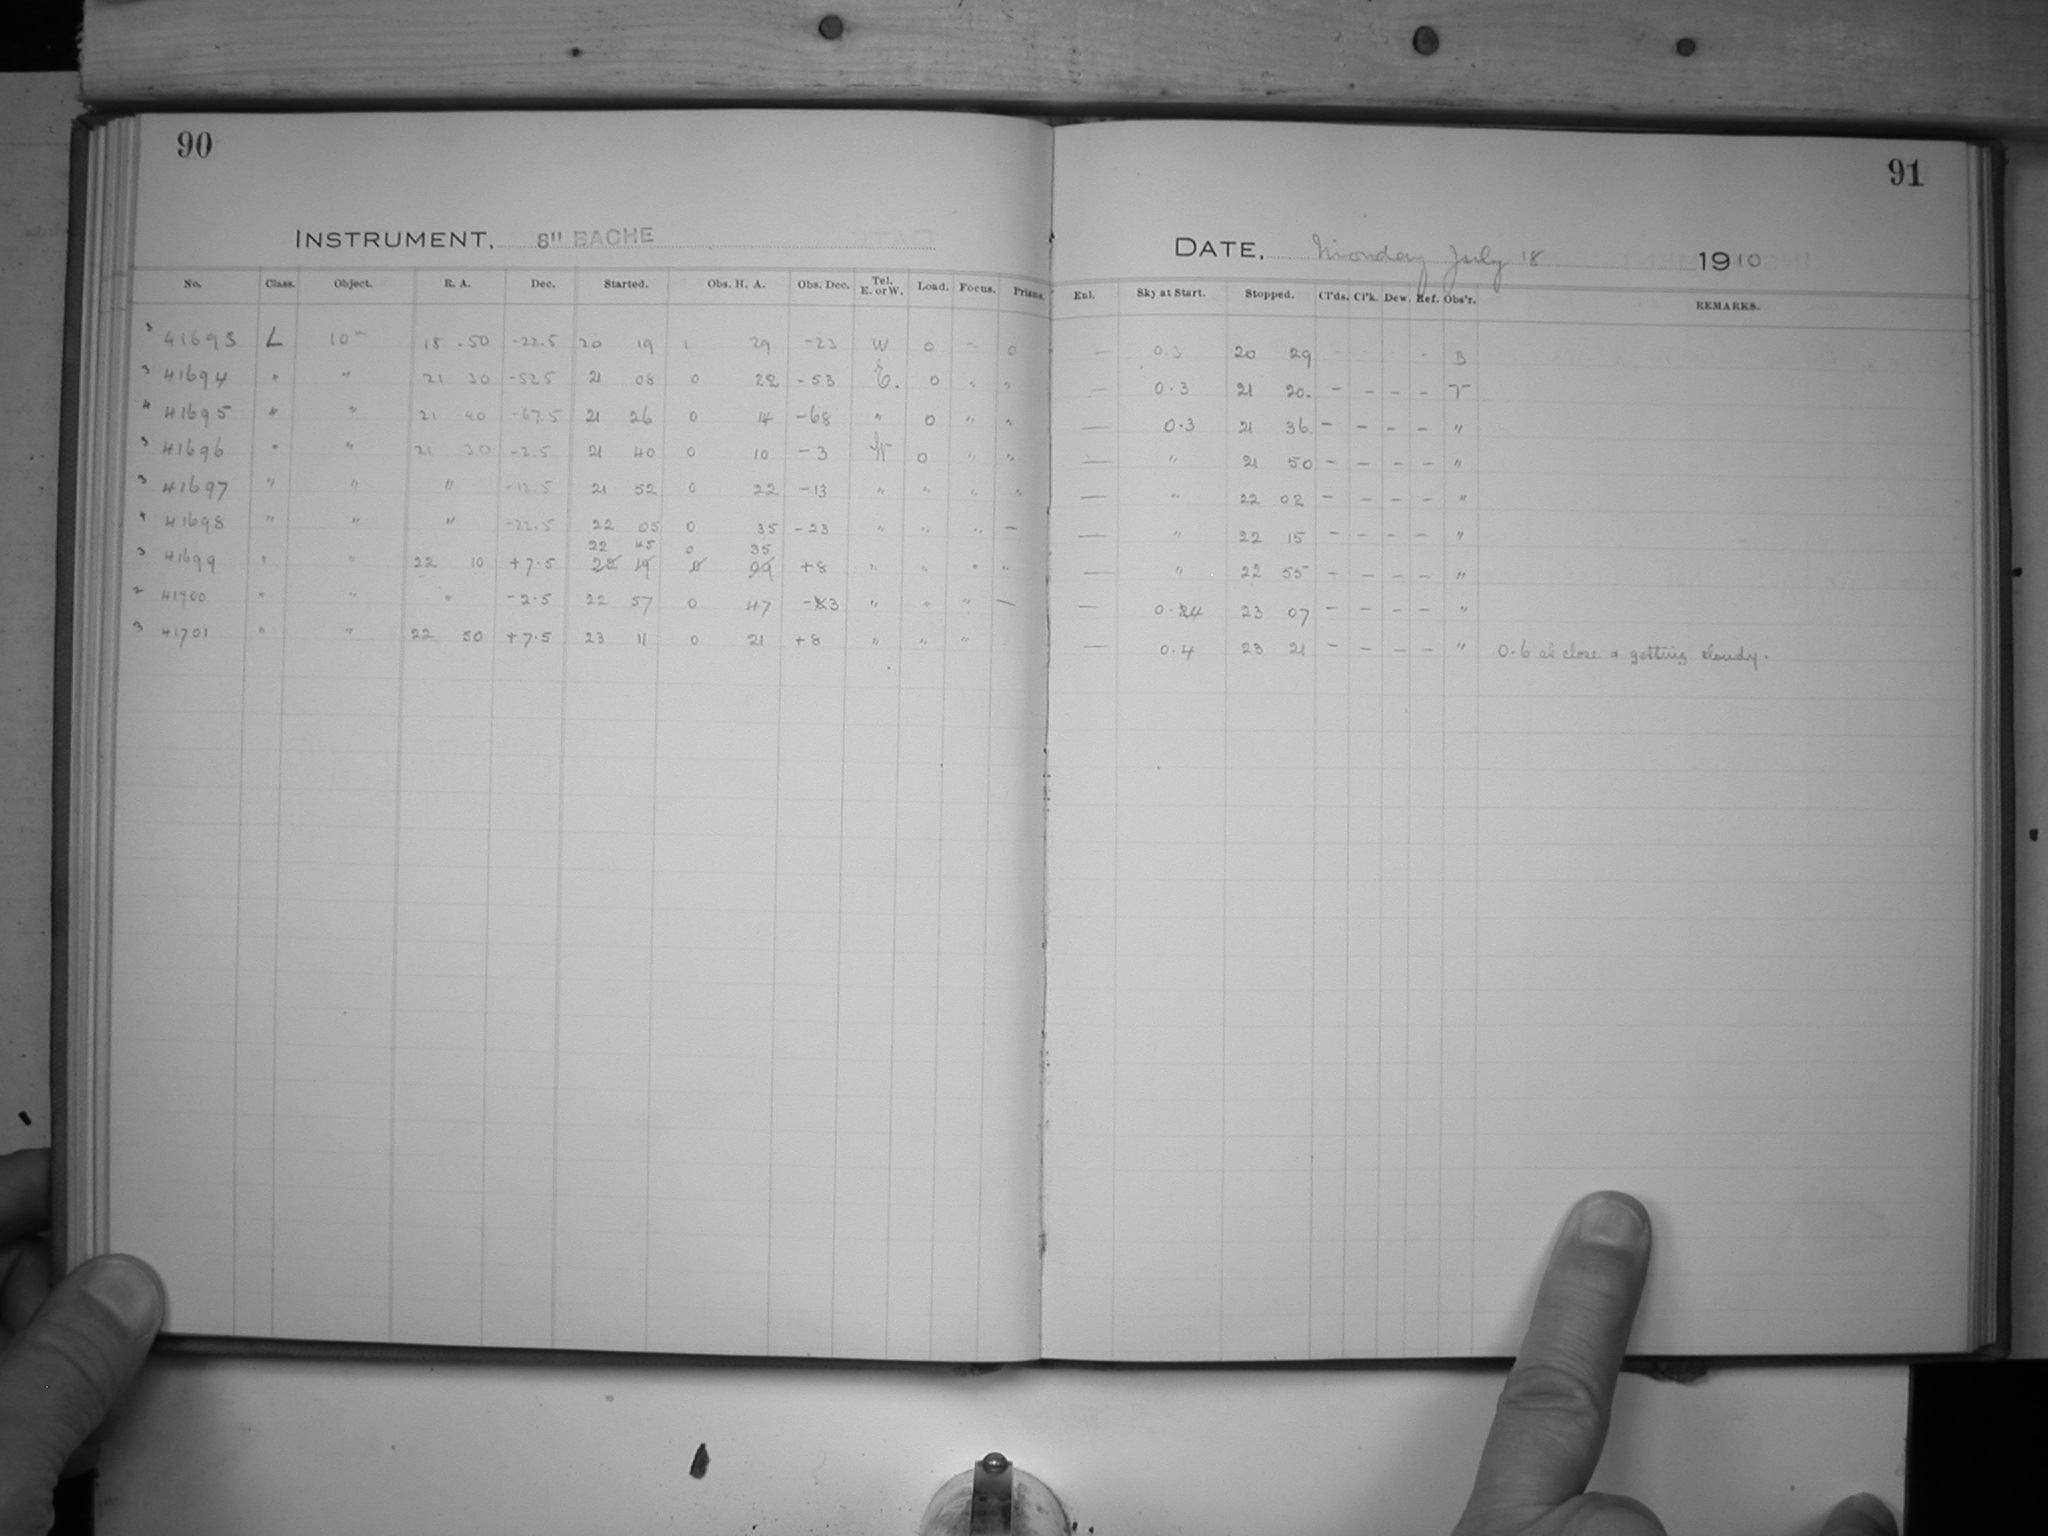 90
INSTRUMENT, 8" BACHE
No. Class. Object. R. A. Dec. Started. Obs. H. A. Obs. Dec. Tel. E. or W. Load. Focus. Prisms.
3 41693 L 10m 18 . 50 -22.5 20 19 1 29 -23 W 0 - 0
3 41694 " " 21 30 -52.5 21 08 0 22 -53 E. 0 " "
4 41695 " " 21 40 -67.5 21 26 0 14 -68 " 0 " "
3 41696 " " 21 30 -2.5 21 40 0 10 -3 W 0 " "
3 41697 " " " -12.5 21 52 0 22 -13 " " " "
4 41698 " " " -22.5 22 05 0 35 -23 " " " —
22 45 0 35
3 41699 " " 22 10 +7.5 22 19 0 09 +8 " " " "
2 41700 " " " -2.5 22 57 0 47 -3 " " " —
3 41701 " " 22 50 +7.5 23 11 0 21 +8 " " "
91
DATE, Monday July 18 1910
Enl. Sky at Start. Stopped. Cl'ds. Cl'k. Dew. Ref. Obs'r. REMARKS.
— 0.3 20 29 - - - - B
— 0.3 21 20. - - - - T
— 0.3 21 36 - - - - "
— " 21 50 - - - - "
— " 22 02 - - - - "
— " 22 15 - - - - "
— " 22 55 - - - - "
— 0.4 23 07 - - - - "
— 0.4 23 21 - - - - " 0.6 at close & getting cloudy.